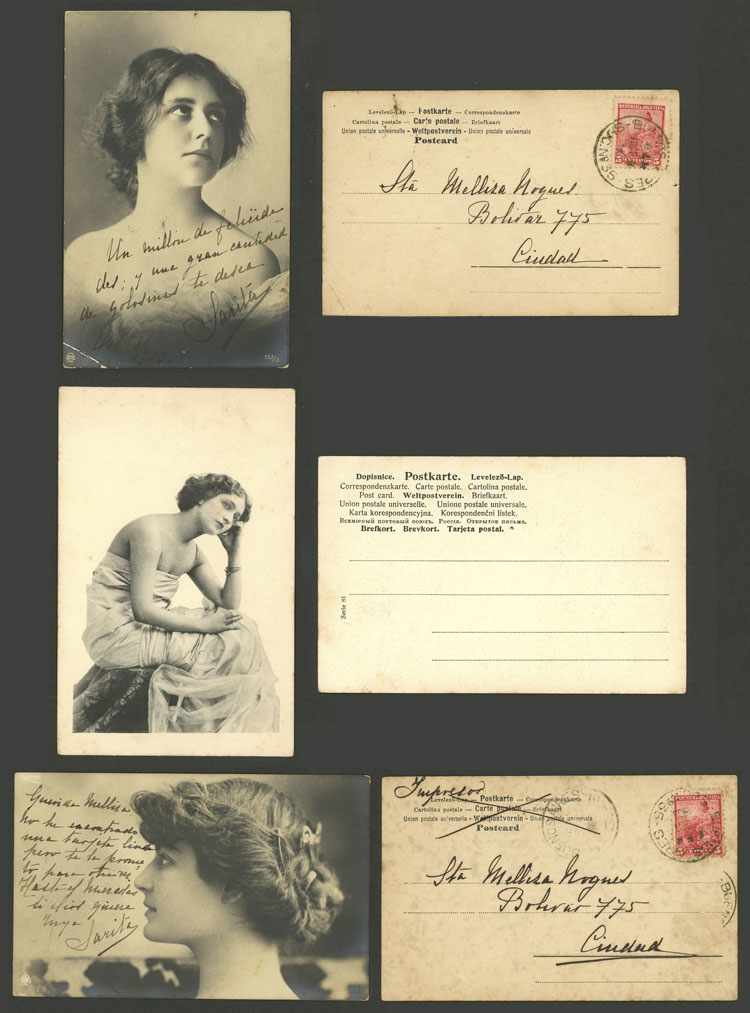 Un millon de felicida
des; y una gran cantidad
de golosinas te desea
Sarita
Levelező-Lap — Postkarte — Correspondenzkarte
Cartolina postale — Carte postale — Briefkaart
Union postale universelle - Weltpostverein - Unione postale universale
Postcard
Sta Melliza Nogues
Bolivar 775
Ciudad
Dopisnice. Postkarte. Levelező-Lap.
Correspondenzkarte. Carte postale. Cartolina postale.
Post card. Weltpostverein. Briefkaart.
Union postale universelle. Unione postale universale.
Karta korespondencyjna. Korespondenční lístek.
Всемірный почтовый союзъ. Россія. Открытое письмо.
Brefkort. Brevkort. Tarjeta postal. *
Serie 81
Querida Melliza
no he encontrado
una tarjeta linda
pero te la prome
to para otra vez
Hasta el
si Dios quiere
Tuya
Sarita
Impresos
Levelező-Lap — Postkarte — Correspondenzkarte
Cartolina postale — Carte postale — Briefkaart
Union postale universelle - Weltpostverein - Unione postale universale
Postcard
Sta Melliza Nogues
Bolivar 775
Ciudad